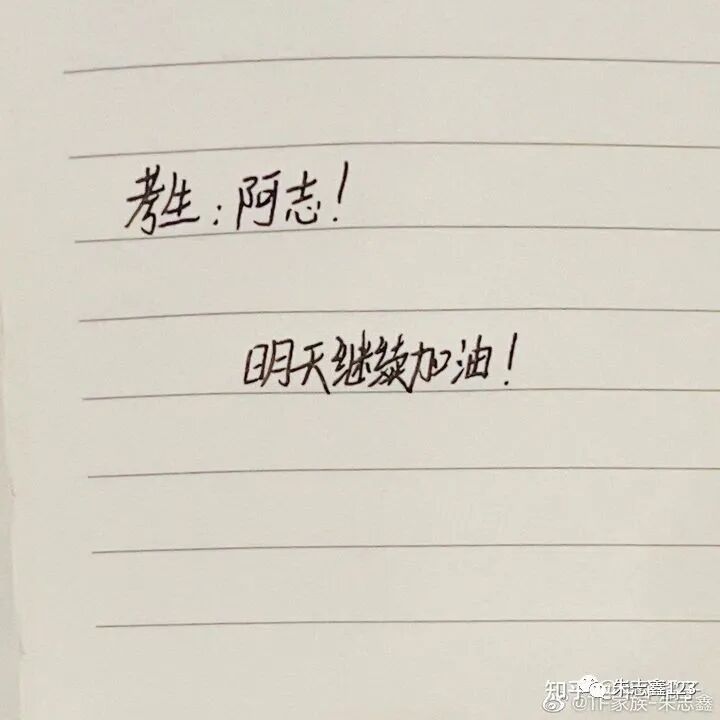 考生：阿志！
明天继续加油！
知乎
朱志鑫123
@TF家族-朱志鑫